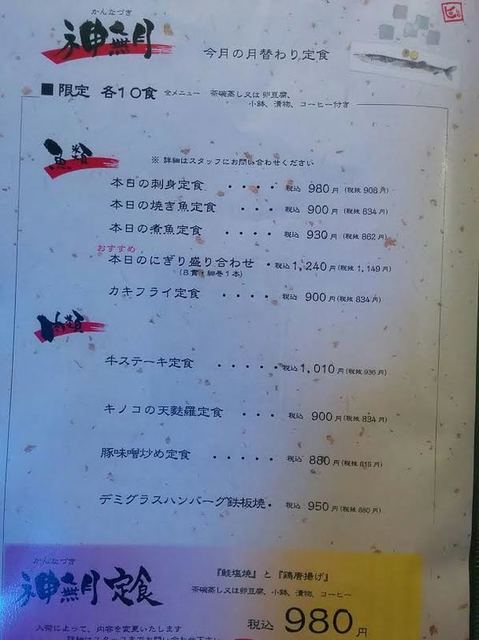 かんなづき
神無月
今月の月替わり定食
■限定 各10食 全メニュー 茶碗蒸し又は卵豆腐、
小鉢、漬物、コーヒー付き
魚類
※ 詳細はスタッフにお問い合わせください
本日の刺身定食 ・・・・ 税込 980円(税抜 908円)
本日の焼き魚定食 ・・・・ 税込 900円(税抜 834円)
本日の煮魚定食 ・・・・ 税込 930円(税抜 862円)
おすすめ
本日のにぎり盛り合わせ ・税込 1,240円(税抜 1,149円)
(8貫+細巻1本)
カキフライ定食 ・・・・ 税込 900円(税抜 834円)
肉類
牛ステーキ定食 ・・・・ 税込 1,010円(税抜 936円)
キノコの天麩羅定食 ・・・・ 税込 900円(税抜 834円)
豚味噌炒め定食 ・・・・・ 税込 880円(税抜 815円)
デミグラスハンバーグ鉄板焼・ 税込 950円(税抜 880円)
かんなづき
神無月定食
『鮭塩焼』と『鶏唐揚げ』
茶碗蒸し又は卵豆腐、小鉢、漬物、コーヒー
税込 980円
入荷によって、内容を変更いたします
詳細はスタッフまでお問い合わせ下さい